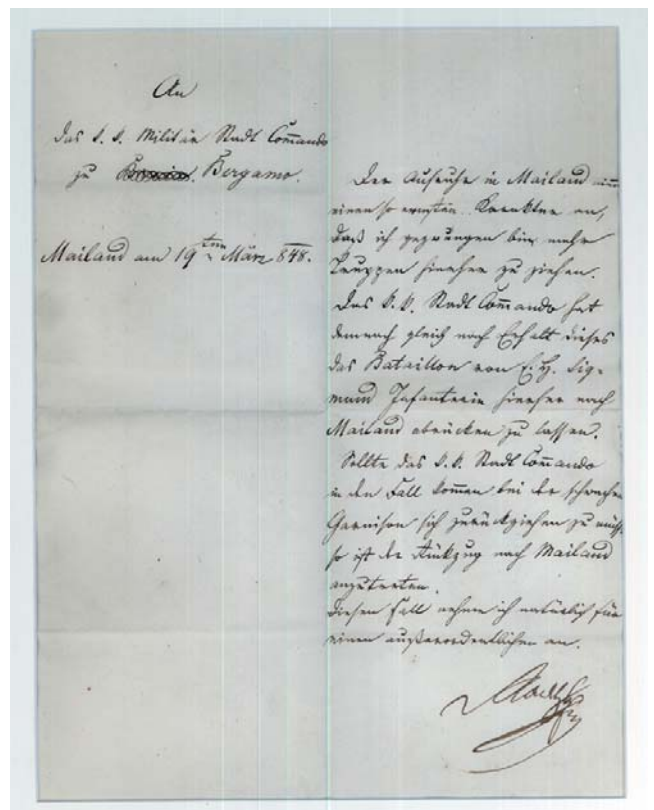 An
das k. k. Militär Stadt Com̅ando
zu Bergamo.
Mailand am 19ten März 848.
Der Aufruhr in Mailand nim̅t
einen so ernsten Karakter an,
daß ich gezwungen bin mehr
Truppen hierher zu ziehen.
Das k. k. Stadt Com̅ando hat
demnach gleich nach Erhalt dieses
das Bataillon von E. H. Sig-
mund Infanterie hierher nach
Mailand abrücken zu lassen.
Sollte das k. k. Stadt Com̅ando
in den Fall kom̅en bei der schwachen
Garnison sich zurückziehen zu müss
so ist der Rückzug nach Mailand
anzutreten.
Diesen Fall nehme ich natürlich für
einen außerordentlichen an.